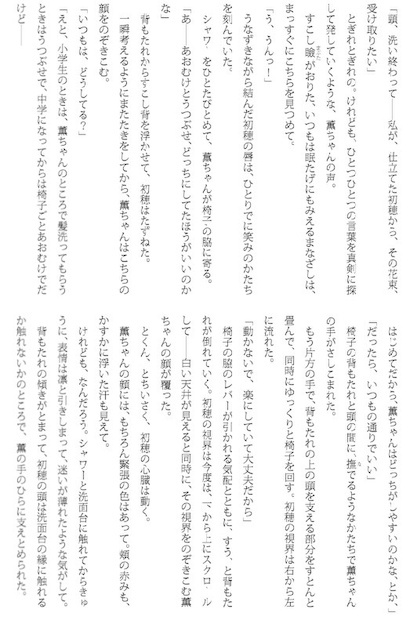 「頭、洗い終わって――私が、仕立てた初穂から、その花束、
受け取りたい」
とぎれとぎれの。けれども、ひとつひとつの言葉を真剣に探
して発していくような、薫ちゃんの声。
すこし瞼がおりた、いつもは眠たげにもみえるまなざしは、
まっすぐにこちらを見つめて。
「う、うんっ！」
うなずきながら結んだ初穂の唇は、ひとりでに笑みのかたち
を刻んでいた。
シャワーをひとたびとめて、薫ちゃんが椅子の脇に寄る。
「あ――あおむけとうつぶせ、どっちにしてたほうがいいのか
な」
背もたれからすこし背を浮かせて、初穂はたずねた。
一瞬考えるようにまたたきをしてから、薫ちゃんはこちらの
顔をのぞきこむ。
「いつもは、どうしてる？」
「えと、小学生のときは、薫ちゃんのところで髪洗ってもらう
ときはうつぶせで、中学になってからは椅子ごとあおむけでだ
けど――
はじめてだから、薫ちゃんはどっちがしやすいのかな、とか、」
「だったら、いつもの通りでいい」
椅子の背もたれと頭の間に、撫でるようなかたちで薫ちゃん
の手がさしこまれた。
もう片方の手で、背もたれの上の頭を支える部分をすとんと
畳んで、同時にゆっくりと椅子を回す。初穂の視界は右から左
に流れた。
「動かないで、楽にしていて大丈夫だから」
椅子の脇のレバーが引かれる気配とともに、すう、と背もた
れが倒れていく。初穂の視界は今度は、下から上にスクロール
して――白い天井が見えると同時に、そのをのぞきこむ薫
ちゃんの顔が覆った。
とくん、とちいさく、初穂の心臓は動く。
薫ちゃんの顔には、もちろん緊張の色はあって。頬の赤みも、
かすかに浮いた汗も見えて。
けれども、なんだろう。シャワーと洗面台に触れてからきゅ
うに、表情は凛と引きしまって、迷いが薄れたような気がして。
背もたれの傾きがとまって、初穂の頭は洗面台の縁に触れる
か触れないかのところで、薫の手のひらに支えとめられた。